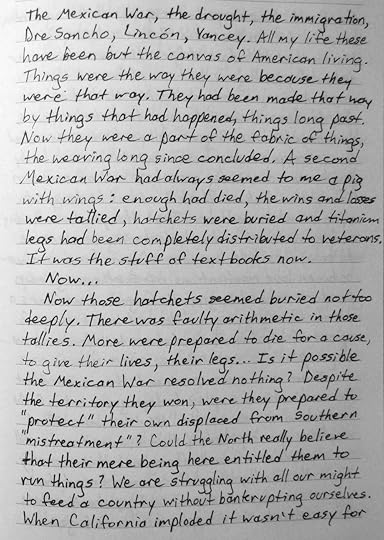 The Mexican War, the drought, the immigration,
Dre Sancho, Lincón, Yancey. All my life these
have been but the canvas of American living.
Things were the way they were because they
were that way. They had been made that way
by things that had happened, things long past.
Now they were a part of the fabric of things,
the weaving long since concluded. A second
Mexican War had always seemed to me a pig
with wings: enough had died, the wins and losses
were tallied, hatchets were buried and titanium
legs had been completely distributed to veterans.
It was the stuff of textbooks now.
Now...
Now those hatchets seemed buried not too
deeply. There was faulty arithmetic in those
tallies. More were prepared to die for a cause,
to give their lives, their legs... Is it possible
the Mexican War resolved nothing? Despite
the territory they won, were they prepared to
"protect" their own displaced from Southern
"mistreatment"? Could the North really believe
that their mere being here entitled them to
run things? We are struggling with all our might
to feed a country without bankrupting ourselves.
When California imploded it wasn't easy for